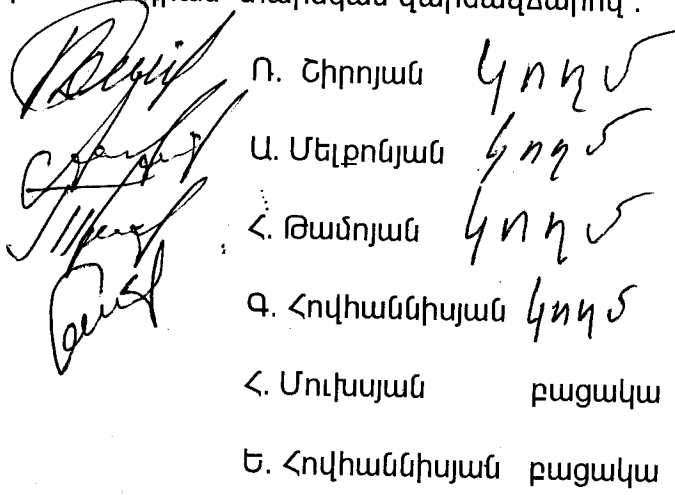 վարձավճարով :
Ռ. Շիրոյան կողմ
Ա. Մելքոնյան կողմ
Հ. Թամոյան կողմ
Գ. Հովհաննիսյան կողմ
Հ. Մուխսյան բացակա
Ե. Հովհաննիսյան բացակա